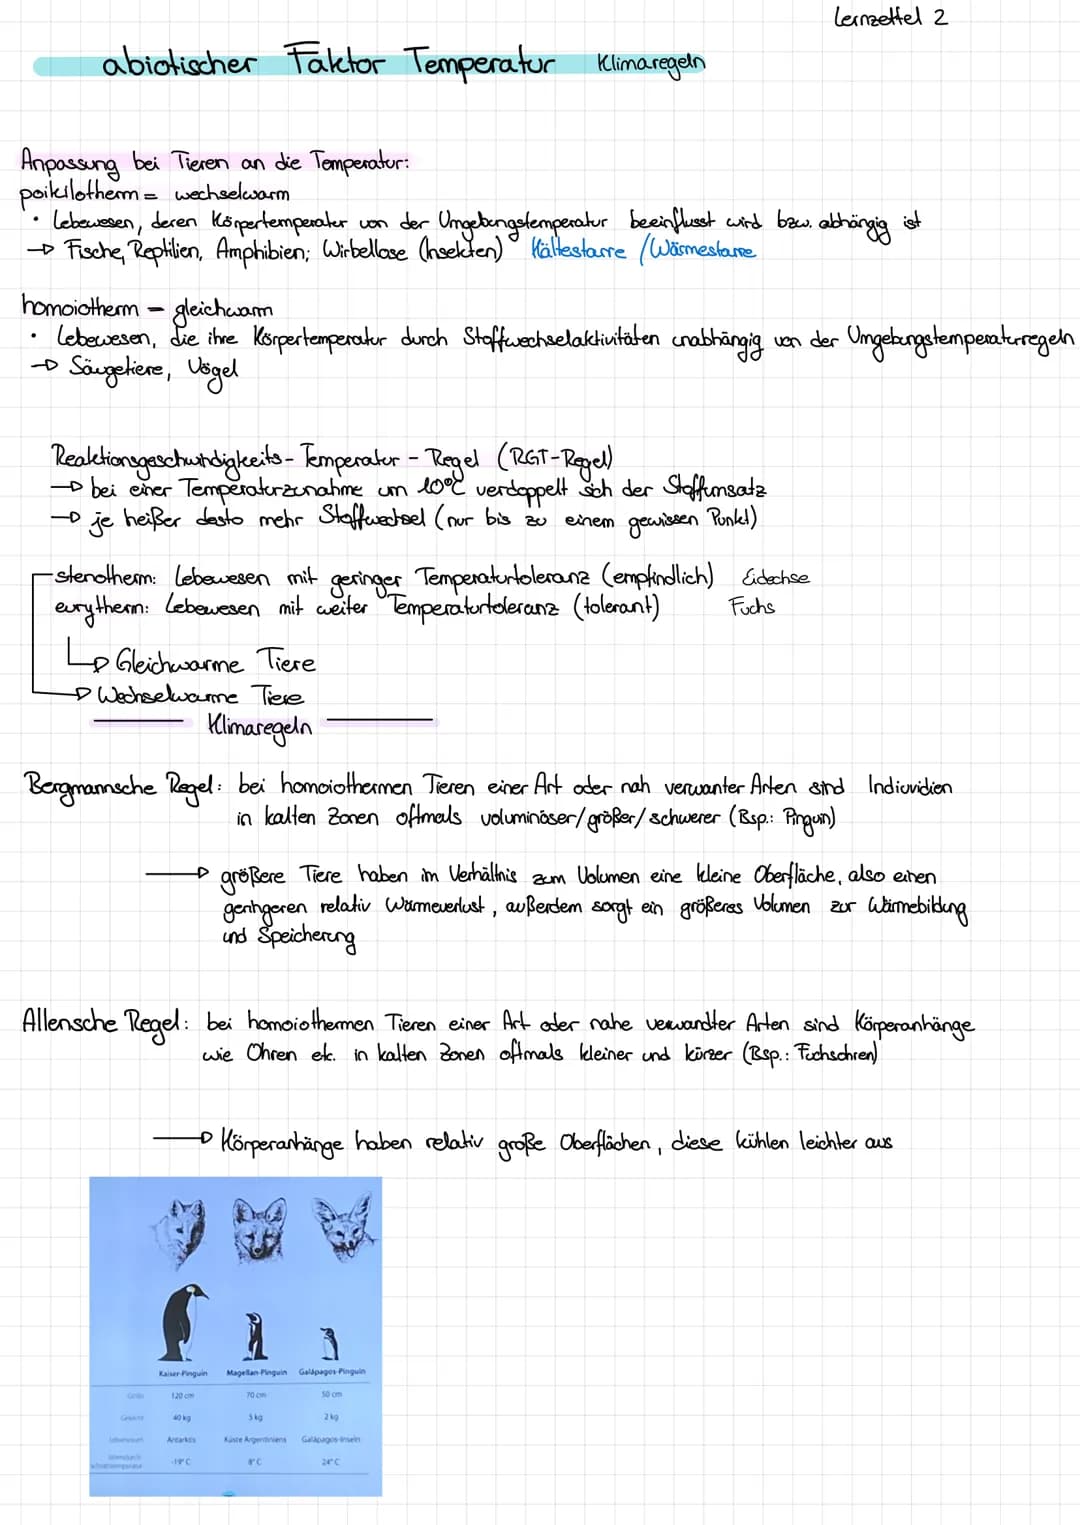 Lernzettel 2
abiotischer Faktor Temperatur Klimaregeln
Anpassung bei Tieren an die Temperatur:
poikilotherm = wechselwarm
• Lebewesen, deren Körpertemperatur von der Umgebungstemperatur beeinflusst wird bzw. abhängig ist
→ Fische, Reptilien, Amphibien; Wirbellose (Insekten) Kältestarre / Wärmestarre
homoiotherm - gleichwarm
• Lebewesen, die ihre Körpertemperatur durch Stoffwechselaktivitäten unabhängig von der Umgebungstemperaturregeln
→ Säugetiere, Vögel
Reaktionsgeschwindigkeits-Temperatur-Regel (RGT-Regel)
→ bei einer Temperaturzunahme um 10°C verdoppelt sich der Stoffumsatz
→ je heißer desto mehr Stoffwechsel (nur bis zu einem gewissen Punkt)
stenotherm: Lebewesen mit geringer Temperaturtoleranz (empfindlich) Eidechse
eurytherm: Lebewesen mit weiter Temperaturtoleranz (tolerant) Fuchs
→ Gleichwarme Tiere
→ Wechselwarme Tiere
Klimaregeln
Bergmannsche Regel: bei homoiothermen Tieren einer Art oder nah verwanter Arten sind Individien
in kalten Zonen oftmals voluminöser/größer/schwerer (Bsp.: Pinguin)
→ größere Tiere haben im Verhältnis zum Volumen eine kleine Oberfläche, also einen
geringeren relativ Wärmeverlust, außerdem sorgt ein größeres Volumen zur Wärmebildung
und Speicherung
Allensche Regel: bei homoiothermen Tieren einer Art oder nahe verwandter Arten sind Körperanhänge
wie Ohren etc. in kalten Zonen oftmals kleiner und kürzer (Bsp.: Fuchsohren)
→ Körperanhänge haben relativ große Oberflächen, diese kühlen leichter aus
Kaiser-Pinguin Magellan-Pinguin Galápagos-Pinguin
Größe 120 cm 70 cm 50 cm
Gewicht 40 kg 5 kg 2 kg
Lebensraum Antarktis Küste Argentiniens Galápagos-Inseln
-19° C 8° C 24° C